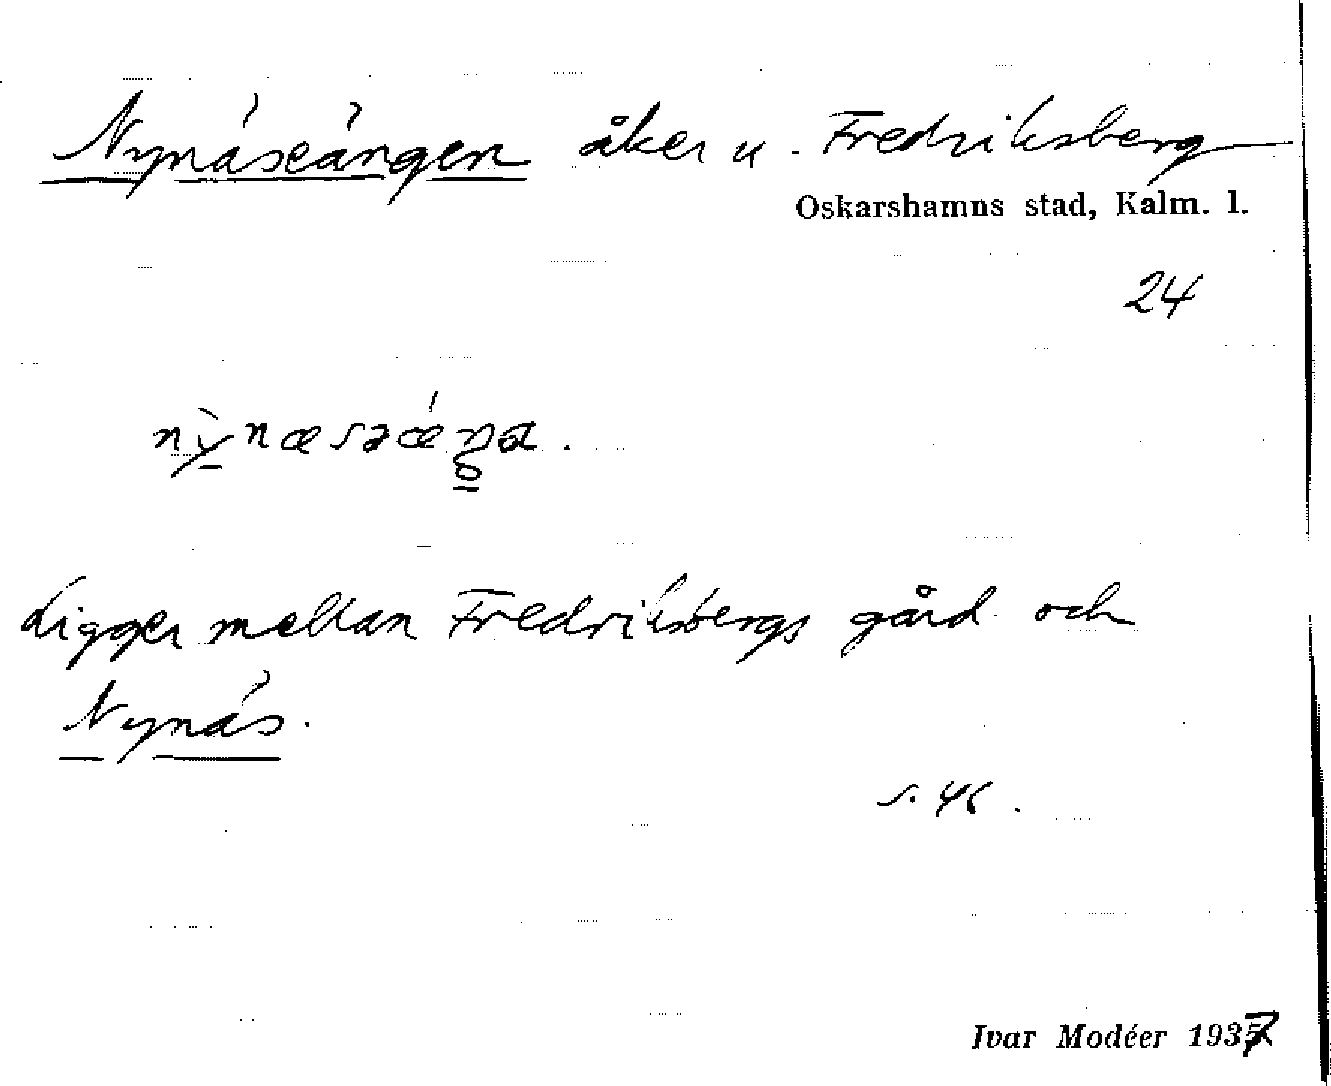 Nynäseängen åker u. Fredriksberg
Oskarshamns stad, Kalm. l.
24
nỳnæsəǽŋa.
Ligger mellan Fredriksbergs gård och
Nynäs.
s. 46.
Ivar Modéer 1937